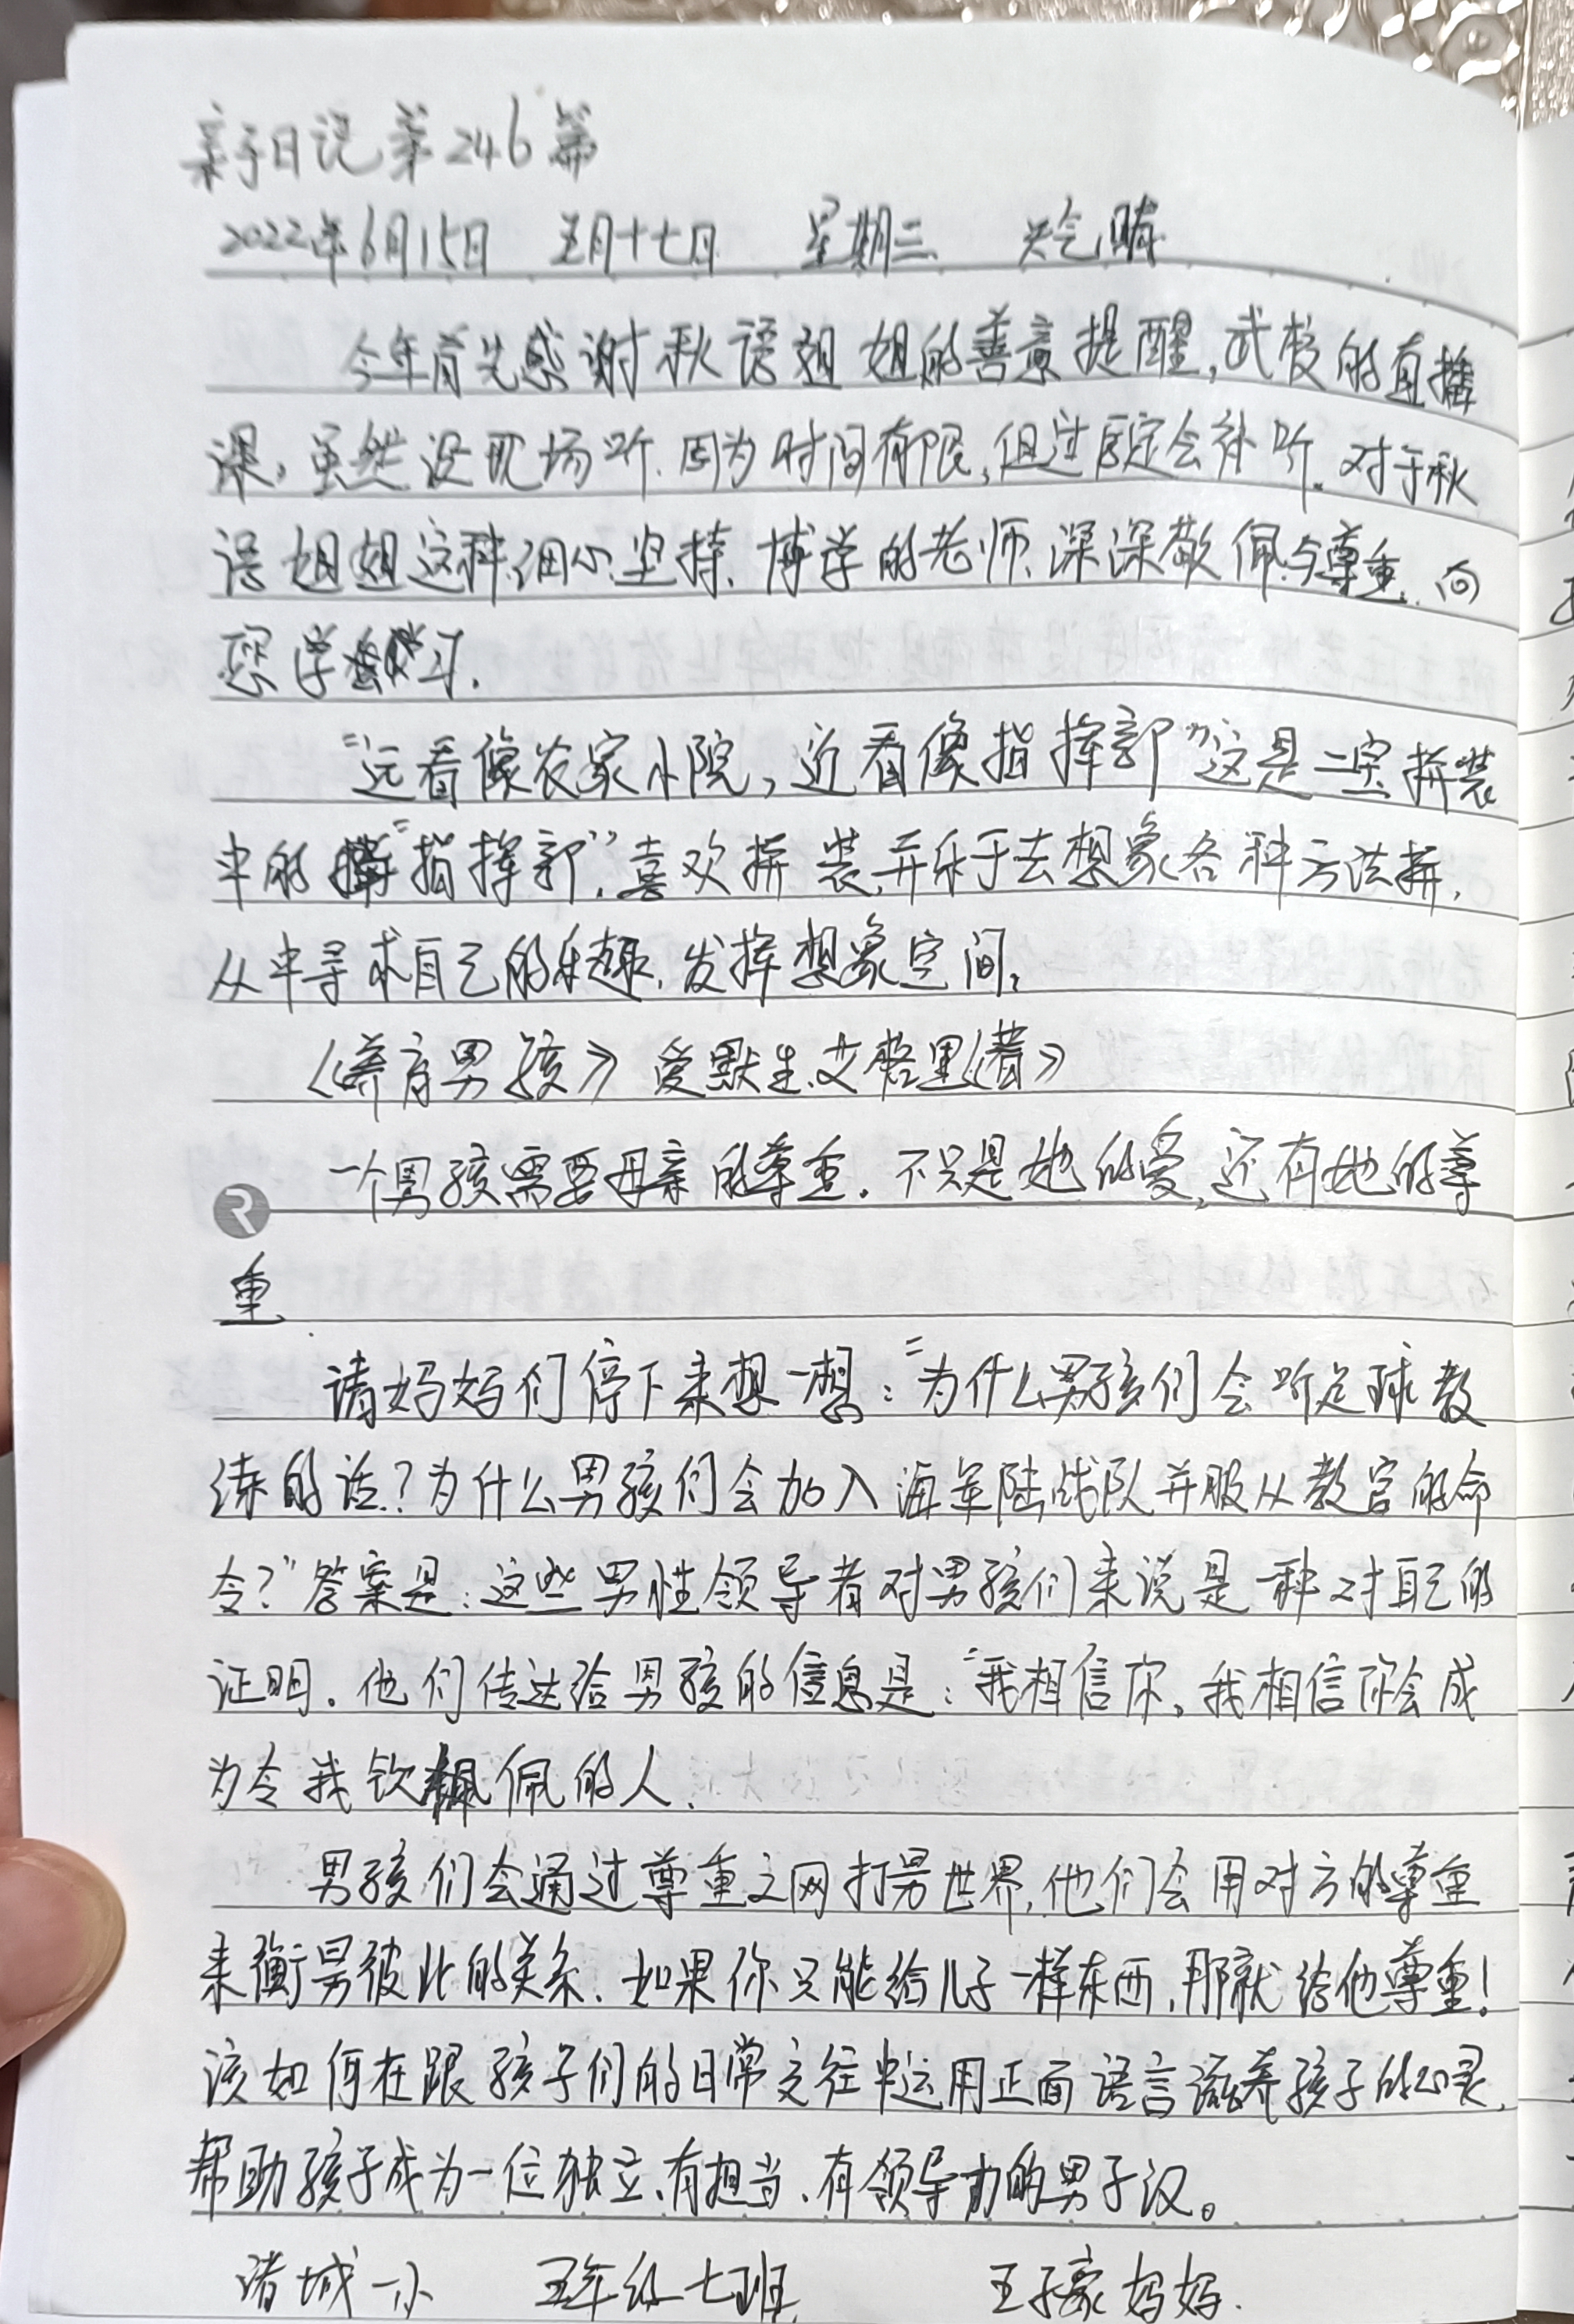 亲子日记第246篇
2022年6月15日 五月十七日 星期三 天气晴
今年首先感谢秋语姐姐的善意提醒,武校的直播
课,虽然没现场听.因为时间有限,但过后定会补听.对于秋
语姐姐这种细心.坚持、博学的老师、深深敬佩与尊重.向
您学习.
“远看像农家小院,近看像指挥部”这是二宝拼装
中的“指挥部”.喜欢拼装,并乐于去想象各种方法拼,
从中寻求自己的乐趣.发挥想象空间,
《养育男孩》爱默生.艾格里《著》
一个男孩需要母亲的尊重.不只是她的爱,还有她的尊
重
请妈妈们停下来想一想:“为什么男孩们会听足球教
练的话?为什么男孩们会加入海军陆战队并服从教官的命
令?”答案是:这些男性领导者对男孩们来说是一种对自己的
证明.他们传达给男孩的信息是:“我相信你,我相信你会成
为令我钦佩的人.
男孩们会通过尊重之网打另世界,他们会用对方的尊重
来衡另彼此的关系.如果你只能给儿子一样东西,那就给他尊重!
该如何在跟孩子们的日常交往中运用正面语言滋养孩子的心灵,
帮助孩子成为一位独立、有担当、有领导力的男子汉。
诸城一小 五年级七班 王子豪妈妈.